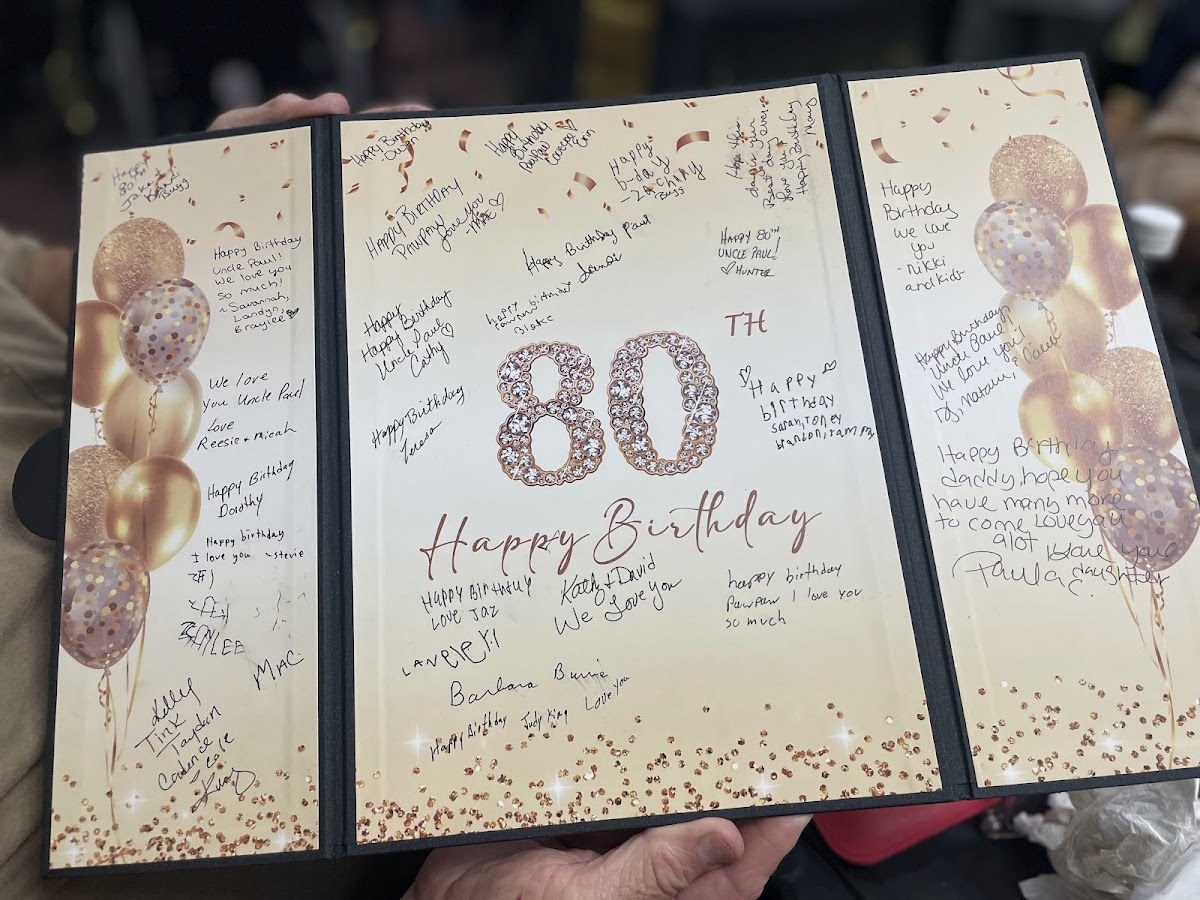 Happy
80th!
Bugg
Happy Birthday
Uncle Paul!
We love you
so much!
~Savannah,
Landyn,
Braylee
We love
You Uncle Paul
Love
Reesie + Micah
Happy Birthday
Dorothy
Happy birthday
I love you ~stevie
MAC
Kelly
Tink
Jayden
Happy Birthday
Happy Birthday
PawPaw
Happy
b-day
Hope this
day is your
Best day ever
love you
Happy Birthday
HAPPY BIRTHDAY
PAWPAW
love you
-MAE
Happy Birthday Paul
HAPPY 80TH
UNCLE PAUL!
HUNTER
happy birthday
Blake
Happy
Happy Birthday
Uncle Paul
Cathy
Happy Birthday
80
TH
Happy
birthday
Happy Birthday
HAPPY BIRTHDAY
LOVE JAZ
Kathy + David
We Love you
happy birthday
PawPaw I love you
so much
Barbara
Happy Birthday Judy King Love you
Happy
Birthday
We love
you
-Nikki
and kids-
Happy Birthday
Uncle Paul
We love you!
Happy Birthday
daddy, hope you
have many more
to come Love you
alot
your
Paula
daughter